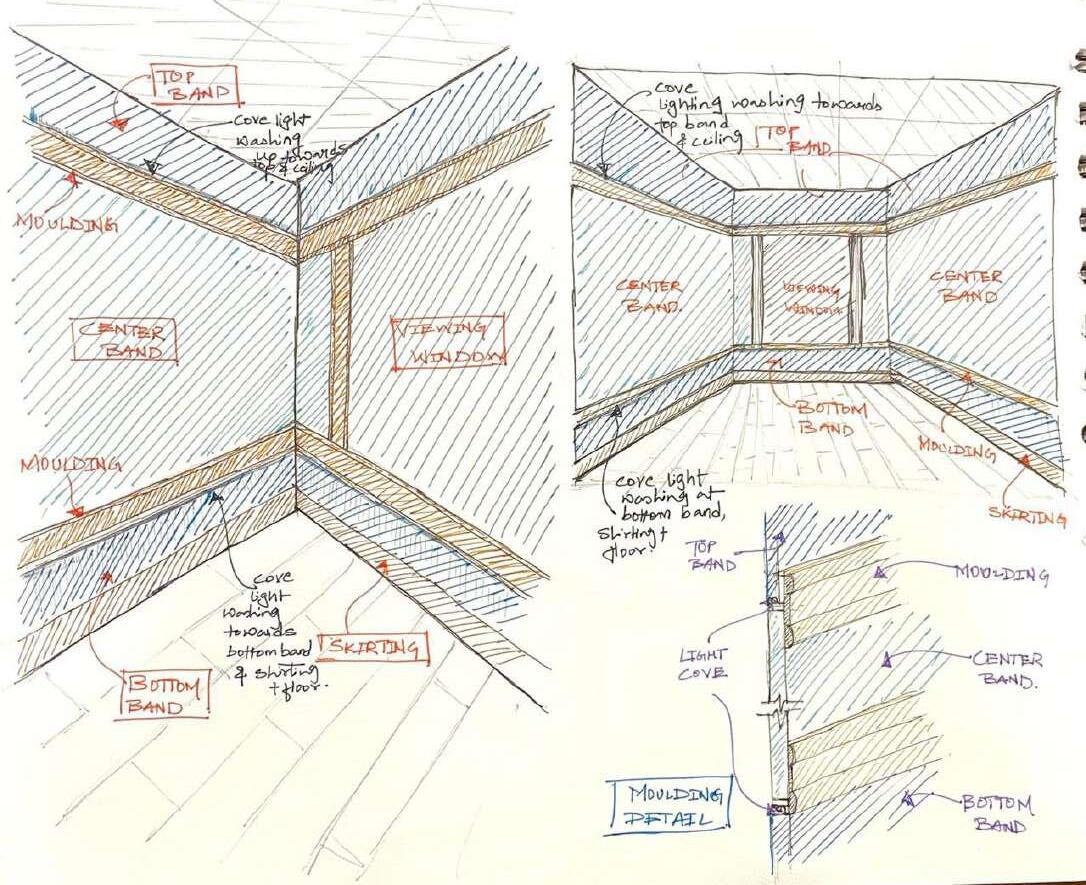 TOP
BAND
cove light
washing
up towards
top & ceiling
MOULDING
CENTER
BAND
VIEWING
WINDOW
MOULDING
cove
light
washing
towards
bottom band
& skirting
+ floor.
SKIRTING
BOTTOM
BAND
cove
lighting washing towards
top band
& ceiling
TOP
BAND
CENTER
BAND.
VIEWING
WINDOW
CENTER
BAND
BOTTOM
BAND
MOULDING
SKIRTING
cove light
washing at
bottom band,
skirting +
floor.
TOP
BAND
MOULDING
LIGHT
COVE
CENTER
BAND.
MOULDING
DETAIL
BOTTOM
BAND